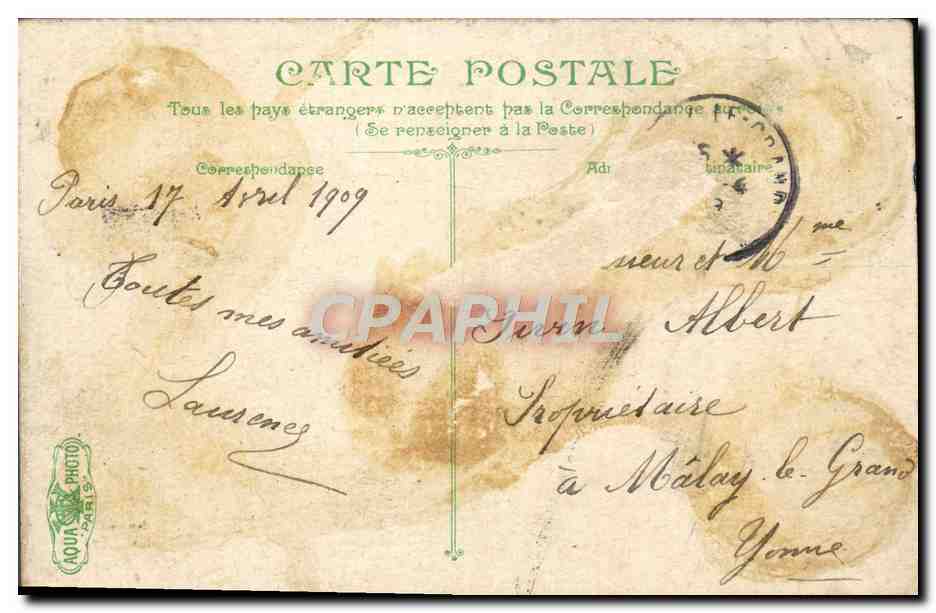 CARTE POSTALE
Tous les pays étrangers n'acceptent pas la Correspondance au
(Se renseigner à la Poste)
Correspondance
Paris 17 Avril 1909
Toutes mes amitiées
Laurence
AQUA PHOTO
PARIS
CPAPHIL
Ad tinataire
LE-GRAND
5 *
4
sieur et Mme
Albert
Propriétaire
à Mâlay-le-Grand
Yonne